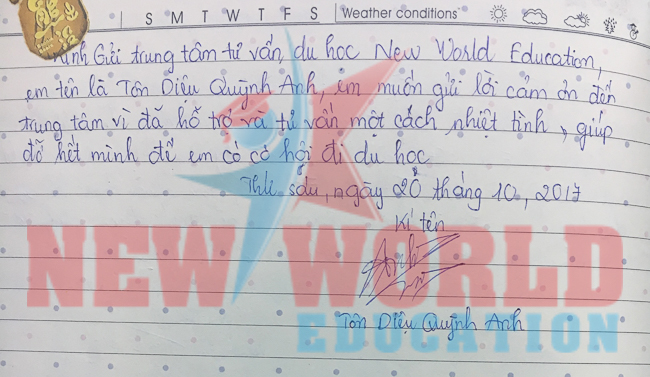 S M T W T F S Weather conditions
Kính Gửi trung tâm tư vấn du học New World Education,
em tên là Tôn Diệu Quỳnh Anh, em muốn gửi lời cảm ơn đến
trung tâm vì đã hỗ trợ và tư vấn một cách nhiệt tình, giúp
đỡ hết mình để em có cơ hội đi du học
Thứ sáu, ngày 20 tháng 10, 2017
Kí tên
Anh
Tôn Diệu Quỳnh Anh
NEW WORLD
EDUCATION